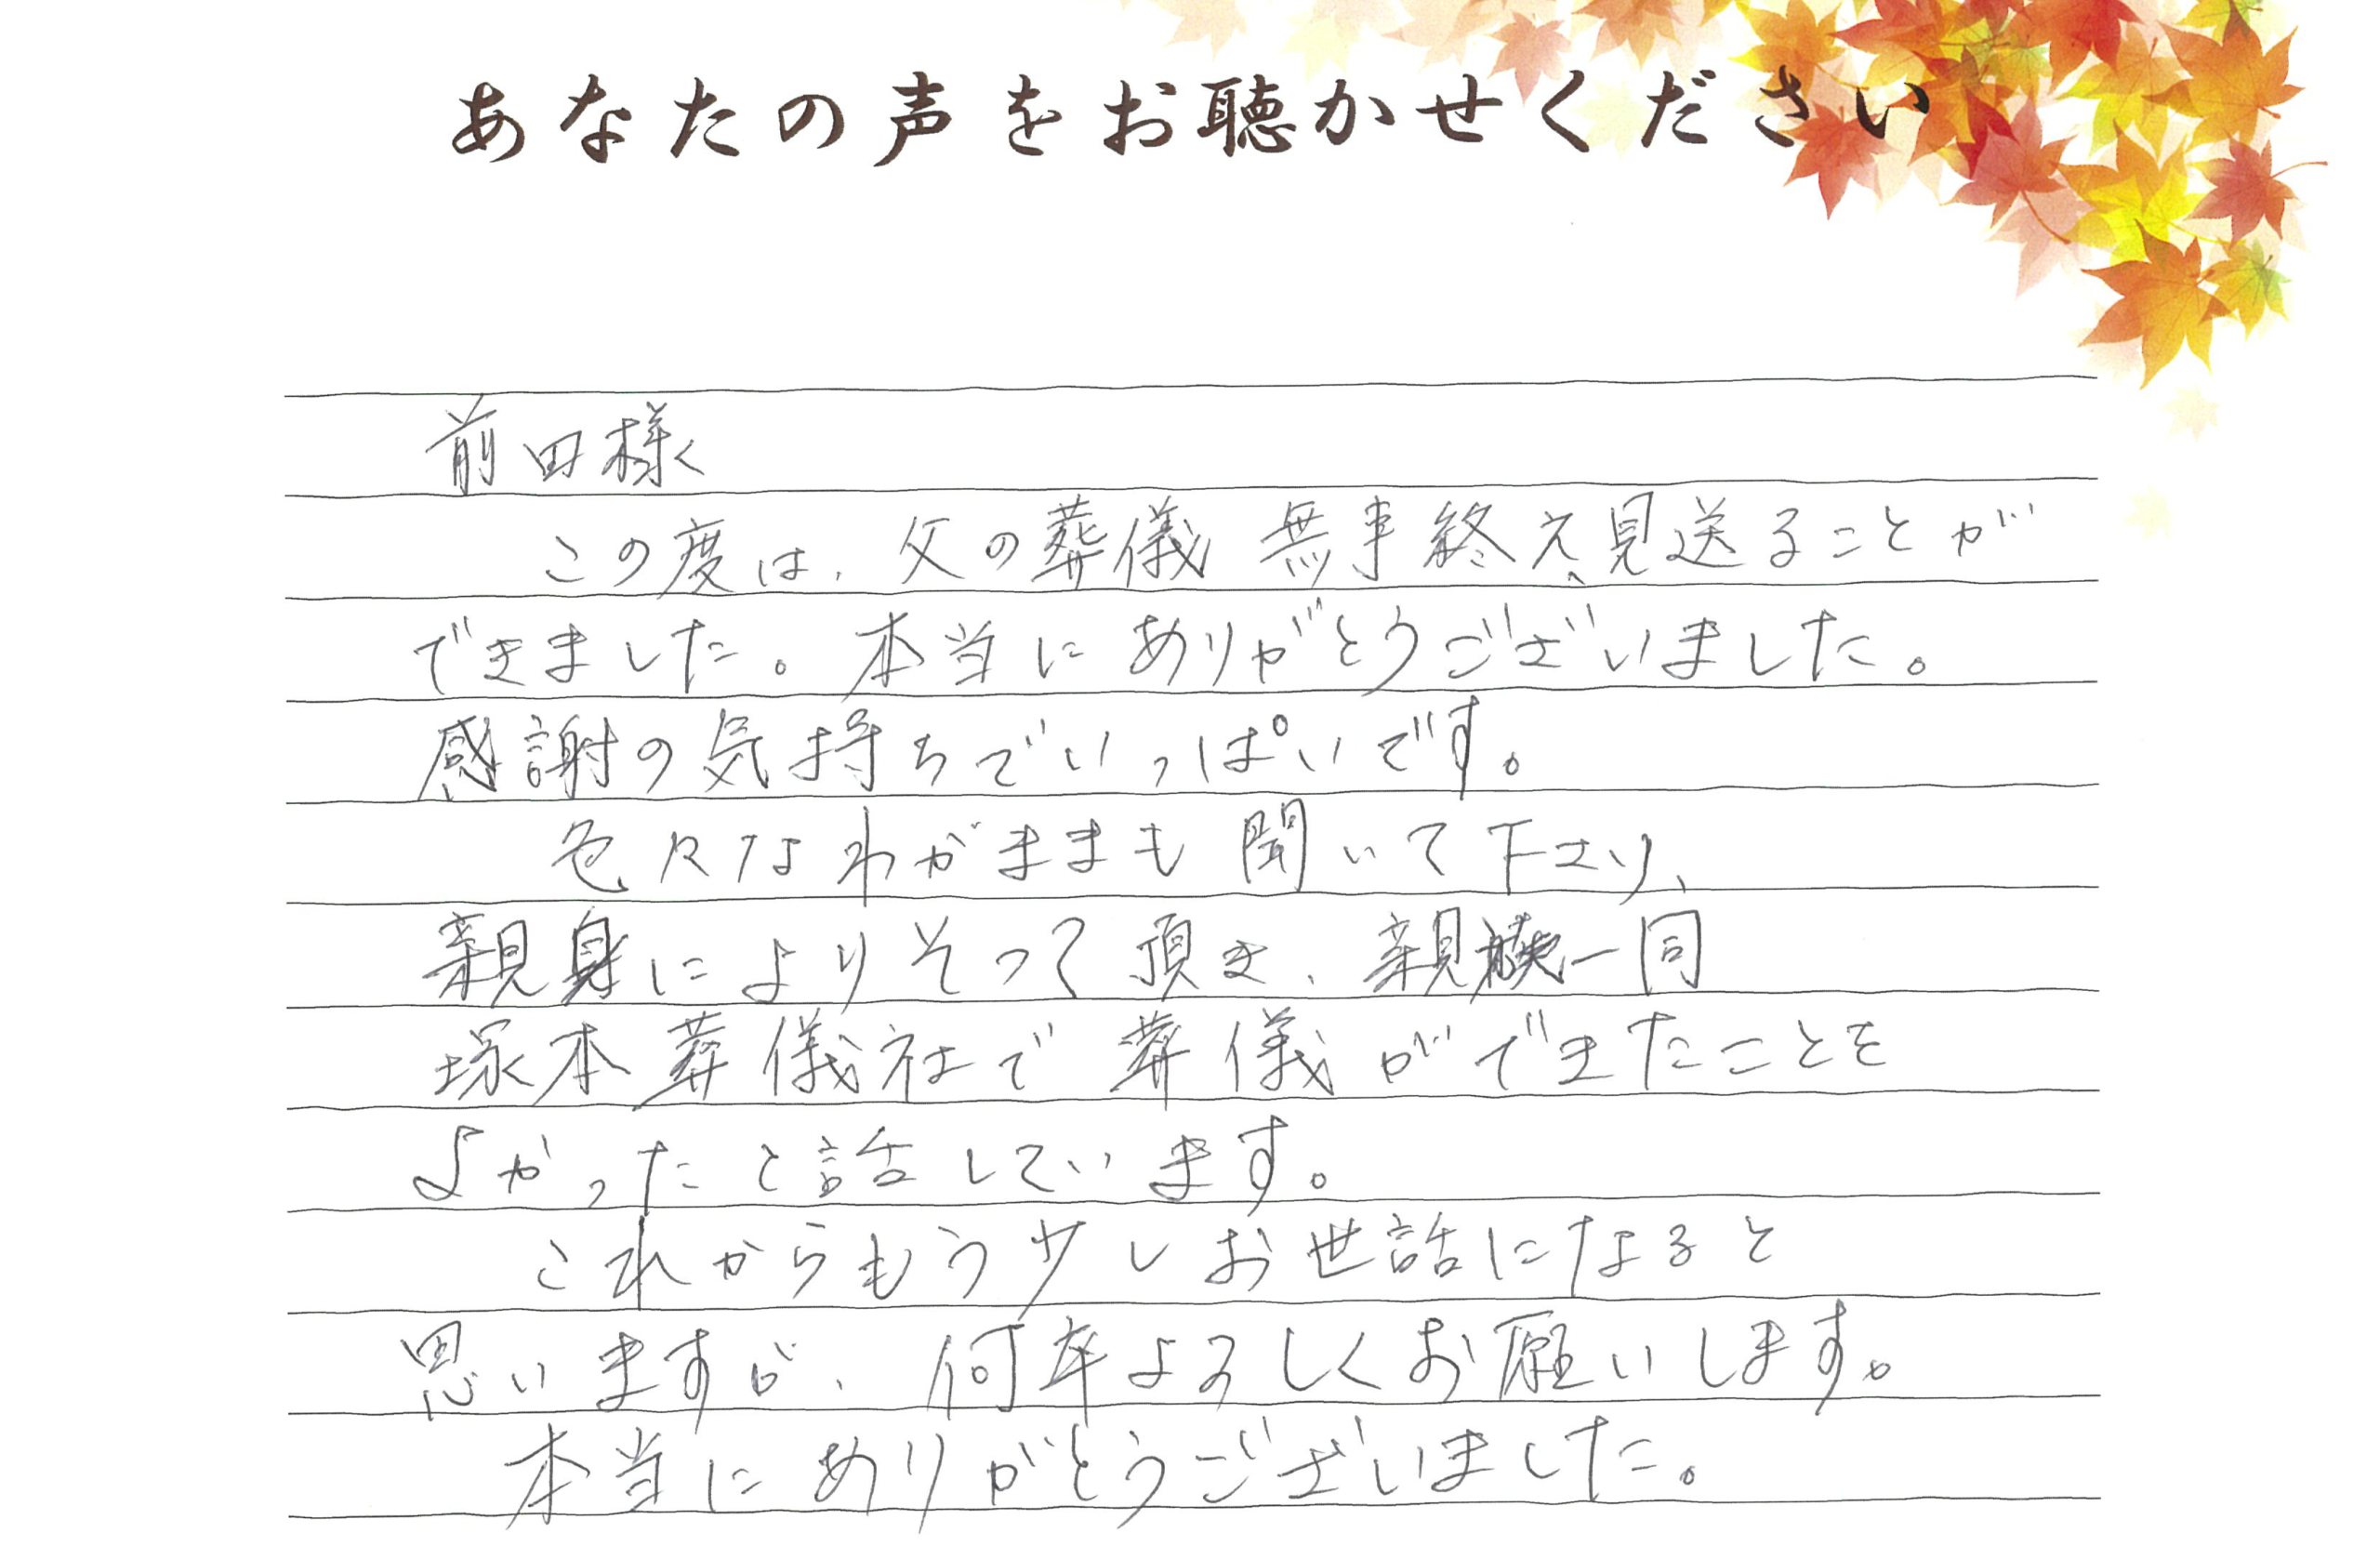 あなたの声をお聴かせください
前田様
この度は、父の葬儀 無事終え、見送ることが
できました。本当にありがとうございました。
感謝の気持ちでいっぱいです。
色々なわがままも聞いて下さり、
親身によりそって頂き、親族一同
塚本葬儀社で葬儀ができたことを
よかったと話しています。
これからもう少しお世話になると
思いますが、何卒よろしくお願いします。
本当にありがとうございました。